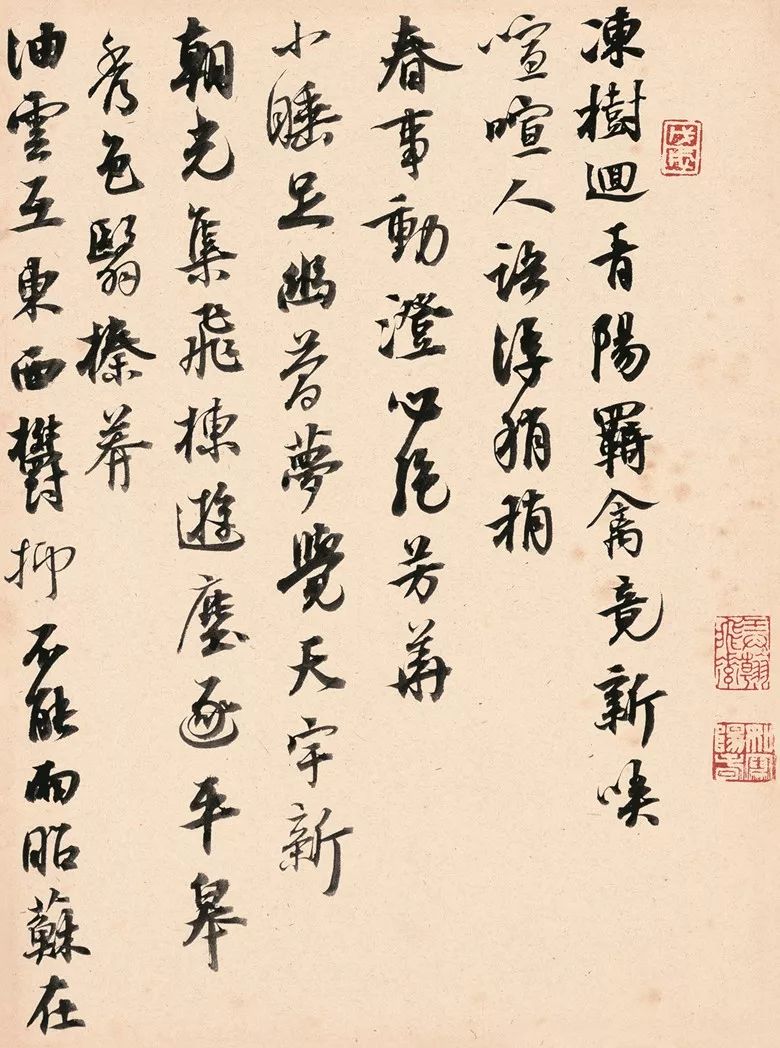 凍樹迴青陽羇禽竟新唤
喧喧人語浮稍稍
春事動澄心絶芳華
小睡足幽夢覺天宇新
朝光集飛棟遊塵逐平皋
秀色翳榛莽
油雲互東西欝抑不能雨昭蘇在